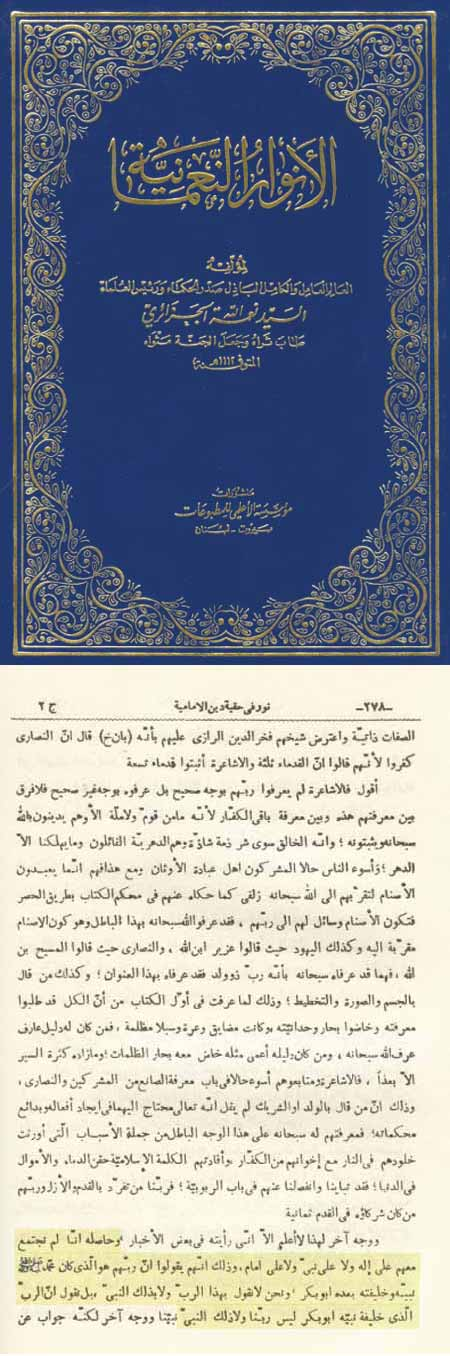 الأنوار النعمانية
لمؤلفه
العالم العامل والكامل الباذل صدر الحكماء ورئيس العلماء
السيد نعمة الله الجزائري
طاب ثراه وجعل الجنة مثواه
المتوفى سنة ١١١٢هـ
منشورات
مؤسسة الأعلمي للمطبوعات
بيروت - لبنان
-٢٧٨- نور في حقية دين الامامية ج ٢
الصفات ذاتية واعترض شيخهم فخر الدين الرازي عليهم بأنه (بان خ) قال ان النصارى
كفروا لأنهم قالوا ان القدماء ثلثة والاشاعرة أثبتوا قدماء تسعة
أقول فالاشاعرة لم يعرفوا ربهم بوجه صحيح بل عرفوه بوجه غير صحيح فلا فرق
بين معرفتهم هذه وبين معرفة باقي الكفار لأنه مامن قوم ولاملة الا وهم يدينون بالله
سبحانه ويثبتونه ؛ وانه الخالق سوى شرذمة شاذة وهم الدهرية القائلون ومايهلكنا الا
الدهر ؛ وأسوء الناس حالا المشركون اهل عبادة الأوثان ومع هذا فهم انما يعبدون
الأصنام لتقربهم الى الله سبحانه زلفى كما حكاه عنهم في محكم الكتاب بطريق الحصر
فتكون الأصنام وسائل لهم الى ربهم ، فقد عرفوا الله سبحانه بهذا الباطل وهو كون الاصنام
مقربة اليه وكذلك اليهود حيث قالوا عزير ابن الله ، والنصارى حيث قالوا المسيح بن
الله ، فهما قد عرفاه سبحانه بأنه رب ذو ولد فقد عرفاه بهذا العنوان ؛ وكذلك من قال
بالجسم والصورة والتخطيط ؛ وذلك لما عرفت في أول الكتاب من أن الكل قد طلبوا
معرفته وخاضوا بحار وحدانيته وكانت مضايق وعرة وسبلا مظلمة ، فمن كان له دليل عارف
عرف الله سبحانه ، ومن كان دليله أعمى مثله خاض معه بحار الظلمات ؛ ومازاده كثرة السير
الا بعداً ، فالاشاعرة ومتابعوهم أسوء حالا في باب معرفة الصانع من المشركين والنصارى ،
وذلك ان من قال بالولد او الشريك لم يقل انه تعالى محتاج اليهما في ايجاد أفعاله وبدائع
محكماته؛ فمعرفتهم له سبحانه على هذا الوجه الباطل من جملة الأسباب التي أورثت
خلودهم في النار مع إخوانهم من الكفار وأفادتهم الكلمة الإسلامية حقن الدماء والأموال
في الدنيا ؛ فقد تباينا وانفصلنا عنهم في باب الربوبية ؛ فربنا من تفرد بالقدم والأزل وربهم
من كان شركاؤه في القدم ثمانية
ووجه آخر لهذا لا أعلم الا اني رأيته في بعض الأخبار ، وحاصله انا لم نجتمع
معهم على إله ولا على نبي ولا على امام ، وذلك انهم يقولوا ان ربهم هو الذي كان محمد
نبيه وخليفته بعده ابوبكر ، ونحن لا نقول بهذا الرب ولا بذلك النبي ، بل نقول ان الرب
الذي خليفة نبيه ابوبكر ليس ربنا ولا ذلك النبي نبينا ووجه آخر لكنه جواب عن